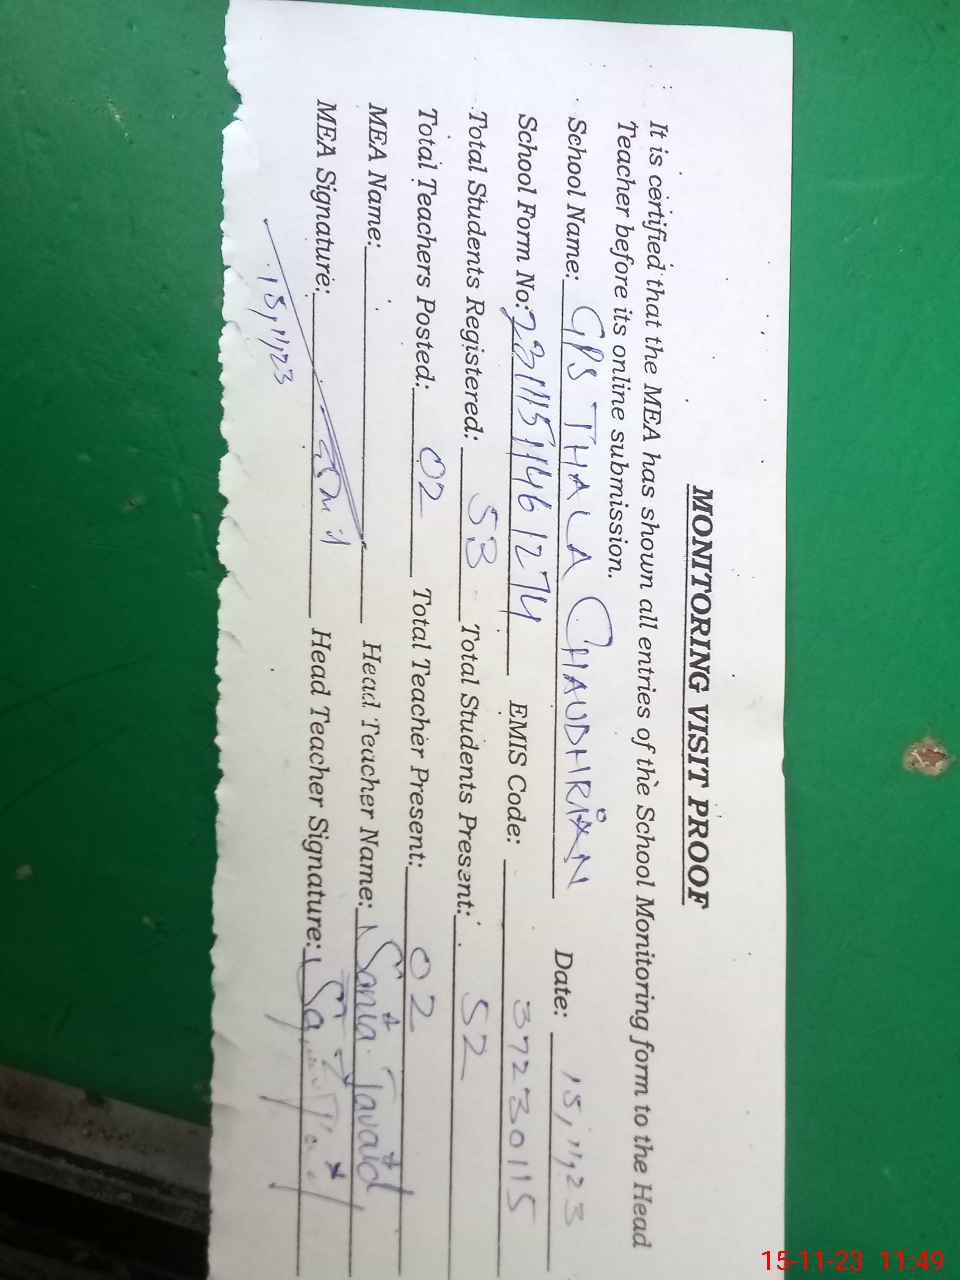 MONITORING VISIT PROOF
It is certified that the MEA has shown all entries of the School Monitoring form to the Head
Teacher before its online submission.
School Name: GPS THALA CHAUDHRIAN Date: 15,11,23
School Form No: 231115114461274 EMIS Code: 37230115
Total Students Registered: 53 Total Students Present: 52
Total Teachers Posted: 02 Total Teacher Present: 02
MEA Name: Head Teacher Name: Sania Javaid
MEA Signature: Head Teacher Signature:
15,11,23
15-11-23 11:49